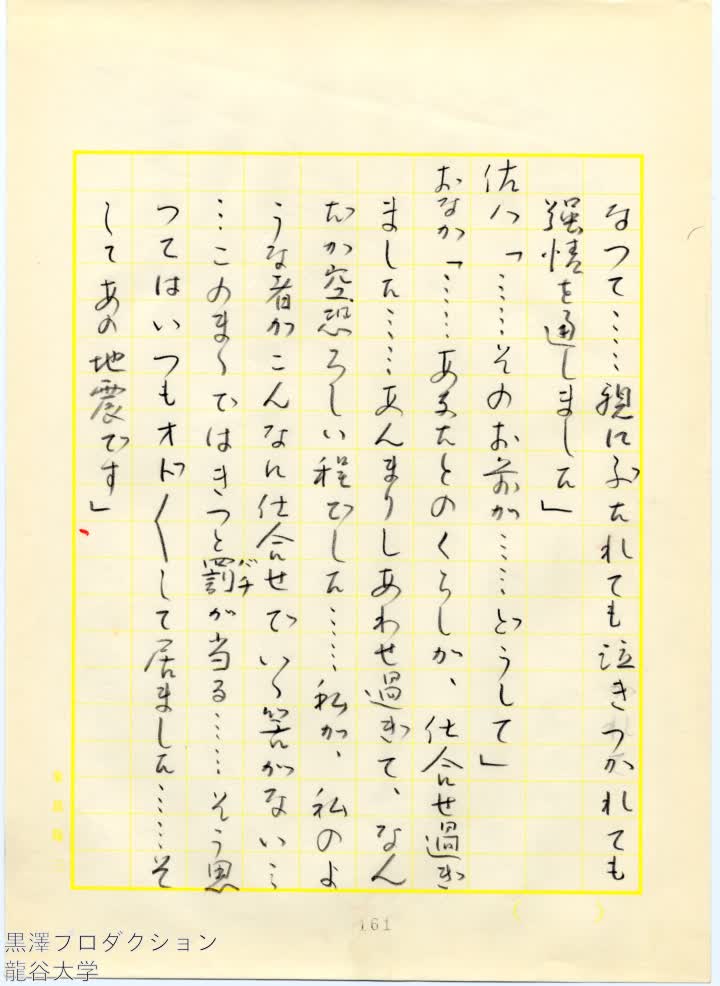 なつて……親にぶたれても泣きつかれても
強情を通しました」
佐八「……そのお前が……どうして」
おなか「……あなたとのくらしが、仕合せ過ぎ
ました……あんまりしあわせ過ぎて、なん
だか空恐ろしい程でした……私が、私のよ
うな者がこんなに仕合せでいゝ筈がない…
…このまゝではきつと罰が当る……そう思
バチ
つてはいつもオド〱して居ました……そ
してあの地震です」
161
黒澤プロダクション
龍谷大学